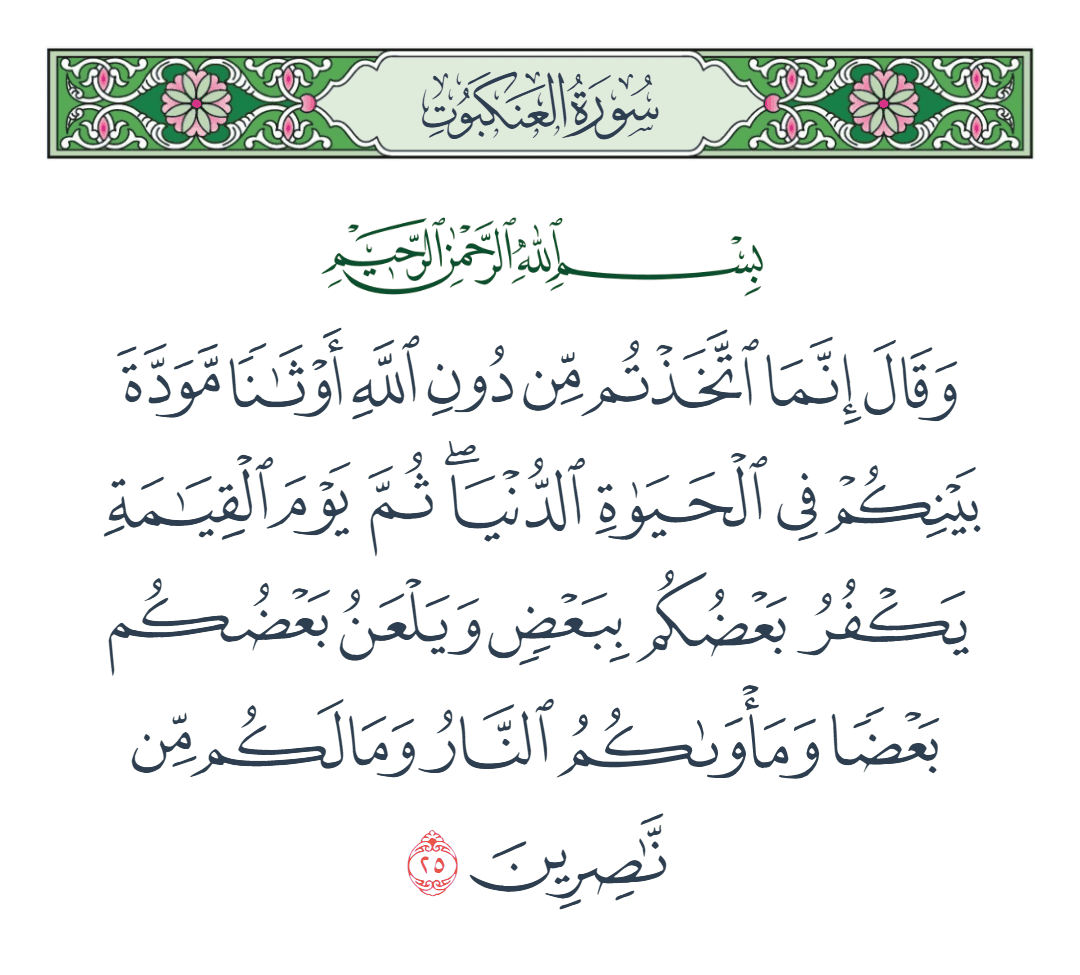 سُورَةُ العَنكَبُوتِ
بِسْمِ ٱللَّهِ ٱلرَّحْمَٰنِ ٱلرَّحِيمِ
وَقَالَ إِنَّمَا ٱتَّخَذْتُم مِّن دُونِ ٱللَّهِ أَوْثَـٰنًا مَّوَدَّةَ
بَيْنِكُمْ فِى ٱلْحَيَوٰةِ ٱلدُّنْيَا ۖ ثُمَّ يَوْمَ ٱلْقِيَـٰمَةِ
يَكْفُرُ بَعْضُكُم بِبَعْضٍ وَيَلْعَنُ بَعْضُكُم
بَعْضًا وَمَأْوَىٰكُمُ ٱلنَّارُ وَمَا لَكُم مِّن
نَّـٰصِرِينَ ٢٥